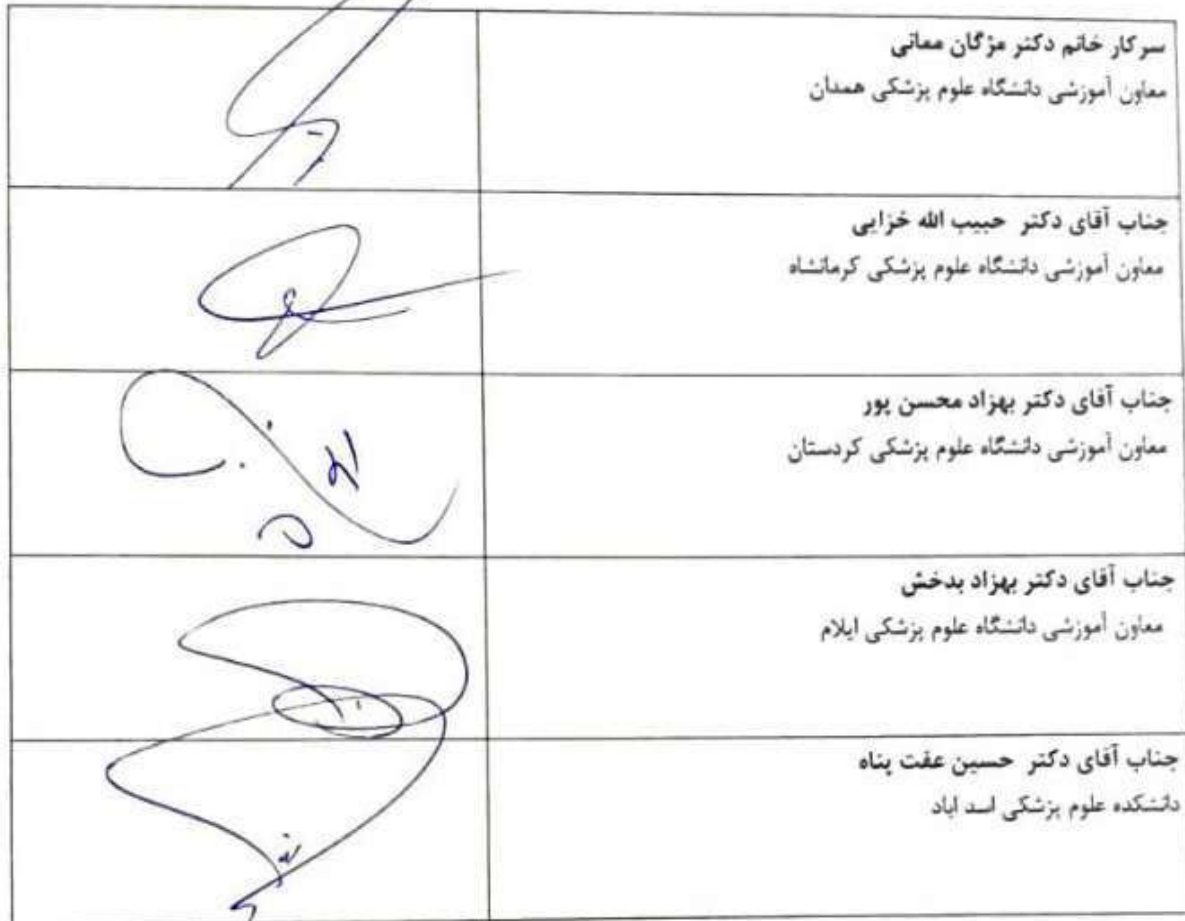 سرکار خانم دکتر مژگان ممانی
معاون آموزشی دانشگاه علوم پزشکی همدان
جناب آقای دکتر حبیب الله خزایی
معاون آموزشی دانشگاه علوم پزشکی کرمانشاه
جناب آقای دکتر بهزاد محسن پور
معاون آموزشی دانشگاه علوم پزشکی کردستان
جناب آقای دکتر بهزاد بدخش
معاون آموزشی دانشگاه علوم پزشکی ایلام
جناب آقای دکتر حسین عفت پناه
دانشکده علوم پزشکی اسد اباد